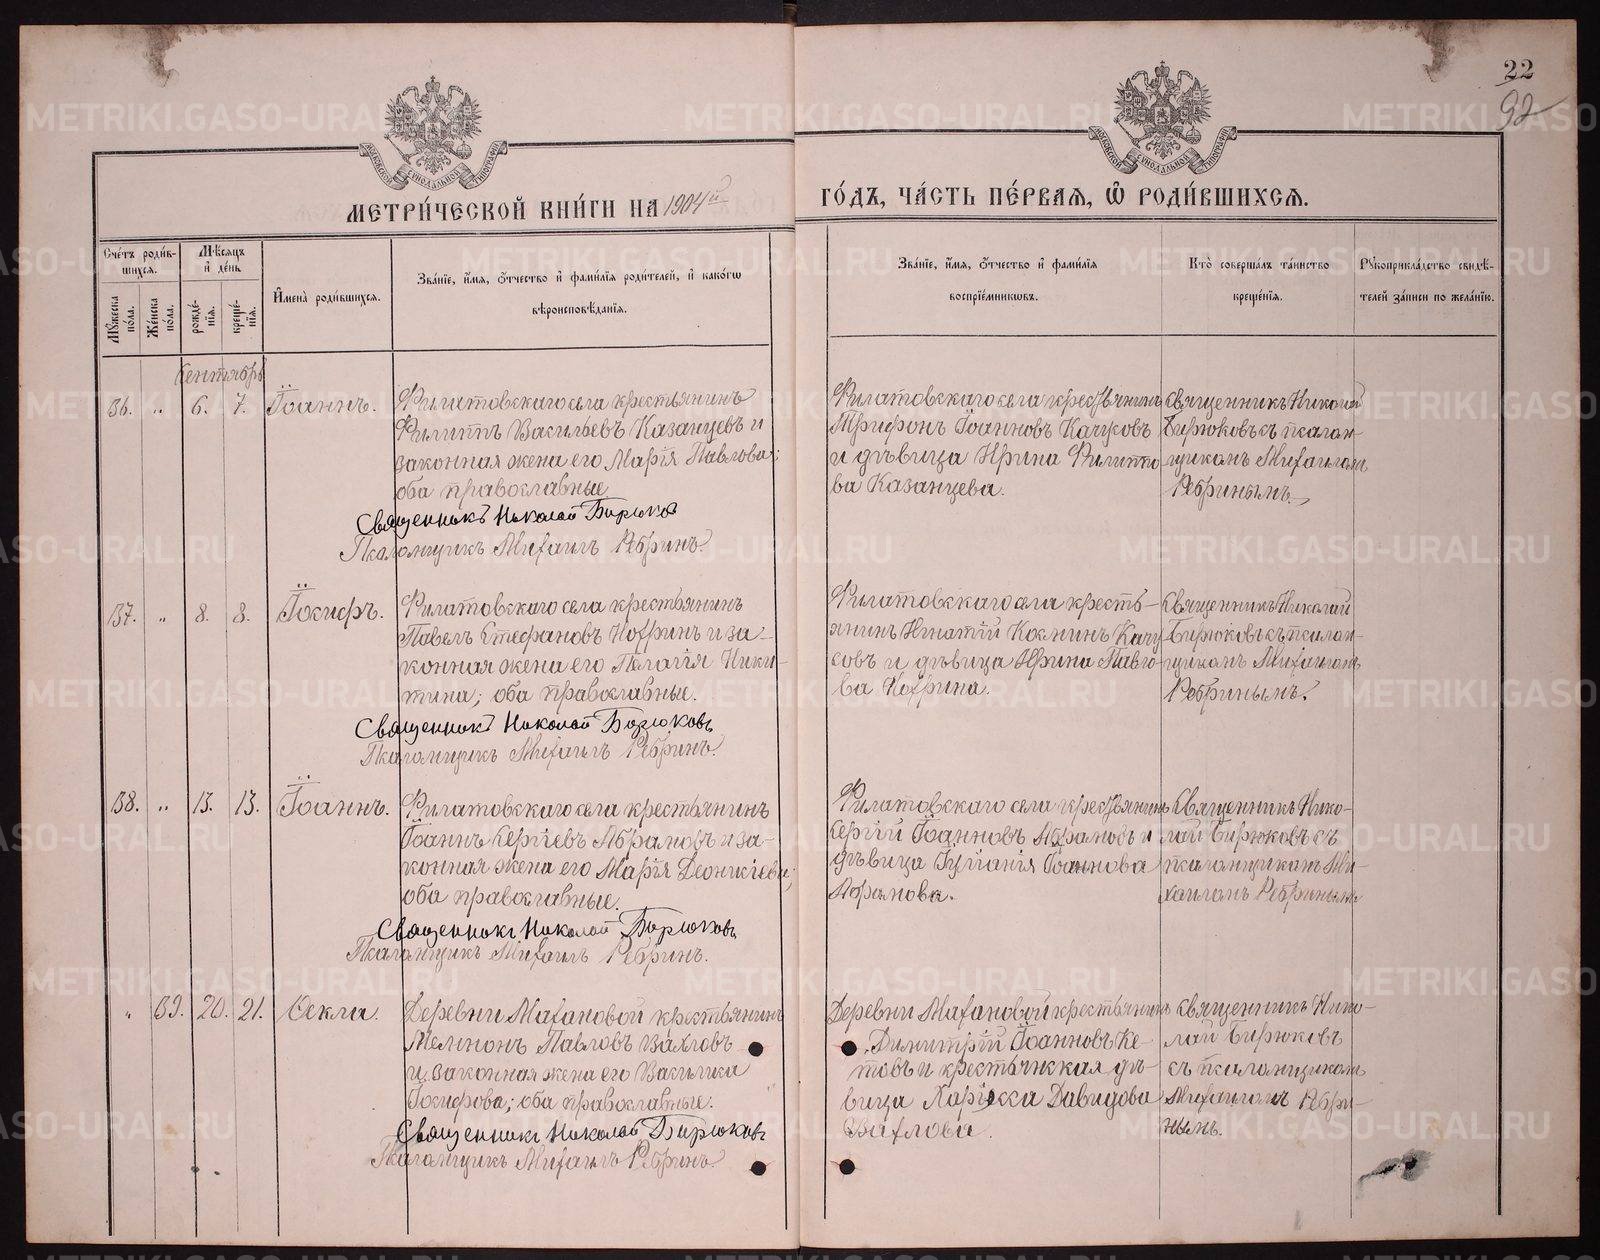 22
92
МЕТРИ́ЧЕСКОЙ КНИ́ГИ НА 1904й
ГО́ДЪ, ЧА́СТЬ ПЕ́РВАѦ, Ѽ РОДИ́ВШИХСѦ.
Сче́тъ роди́в-
шихся.
Мꙋ́жеска по́ла.
Же́нска по́ла.
Мѣ́сяцъ и де́нь
рожде́-
нїя.
креще́-
нїя.
И҆мена̀ роди́вшихся.
Зва́нїе, и҆́мя, ѻ҆́тчество и҆ фами́лїя роди́телей, и҆ како́гѡ
вѣроисповѣ́данїя.
Зва́нїе, и҆́мя, ѻ҆́тчество и҆ фами́лїя
воспрїе́мникѡвъ.
Кто̀ соверша́лъ та́инство
креще́нїя.
Рꙋкоприкла́дство свидѣ́-
телей за́писи по жела́нїю.
Сентябрь
136. „ 6. 7. Іоаннъ.
Филатовскаго села крестьянинъ
Филиппъ Васильевъ Казанцевъ и
законная жена его Марія Павлова;
оба православные.
Священникъ Николай Бирюков
Псаломщикъ Михаилъ Ребринъ.
Филатовскаго села крестьянинъ
Трифонъ Іоанновъ Качусовъ
и дѣвица Ирина Филиппо
ва Казанцева.
Священникъ Николай
Бирюковъ съ псалом-
щикомъ Михаиломъ
Ребринымъ.
137. „ 8. 8. Іосифъ.
Филатовскаго села крестьянинъ
Павелъ Стефановъ Ноѳринъ и за-
конная жена его Пелагія Ники-
тина; оба православные.
Священникъ Николай Бирюковъ
Псаломщикъ Михаилъ Ребринъ.
Филатовскаго села кресть-
янинъ Игнатій Косминъ Качу
совъ и дѣвица Ирина Павло-
ва Ноѳрина.
Священникъ Николай
Бирюковъ съ псалом-
щикомъ Михаиломъ
Ребринымъ.
138. „ 13. 13. Іоаннъ.
Филатовскаго села крестьянинъ
Іоаннъ Сергіевъ Абрамовъ и за-
конная жена его Марія Леонкіева;
оба православные.
Священникъ Николай Бирюковъ
Псаломщикъ Михаилъ Ребринъ.
Филатовскаго села крестьянинъ
Сергій Іоанновъ Абрамовъ и
дѣвица Іуліанія Іоаннова
Абрамова.
Священникъ Нико-
лай Бирюковъ съ
псаломщикомъ Ми-
хаиломъ Ребринымъ
„ 139. 20. 21. Ѳекла.
Деревни Махановой крестьянинъ
Мемнонъ Павловъ Вахловъ
и законная жена его Василиса
Іосифова; оба православные.
Священникъ Николай Бирюковъ
Псаломщикъ Михаилъ Ребринъ
Деревни Махановой крестьянинъ
Димитрій Іоанновъ Ке-
товъ и крестьянская дѣ-
вица Давидова
Вахлова.
Священникъ Нико-
лай Бирюковъ
съ псаломщикомъ
Михаиломъ Ребри-
нымъ.
METRIKI.GASO-URAL.RU